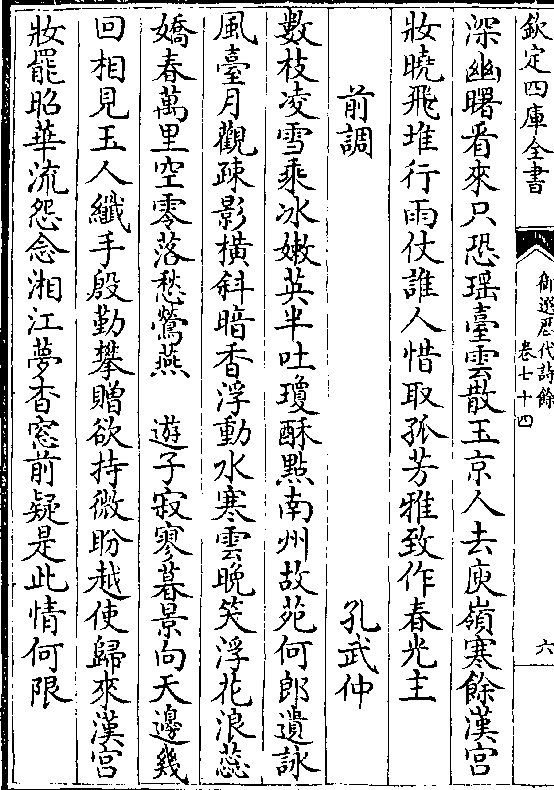 欽定四庫全書
御選歷代詩餘
卷七十四
六
深幽曙看來只恐瑶臺雲散玉京人去庾嶺寒餘漢宮
妝曉飛堆行雨仗誰人惜取孤芳雅致作春光主
前調　孔武仲
數枝凌雪乘冰嫩英半吐瓊酥點南州故苑何郎遺詠
風臺月觀疎影橫斜暗香浮動水寒雲晚笑浮花浪蕊
嬌春萬里空零落愁鶯燕　遊子寂寥暮景向天邊幾
回相見玉人纖手殷勤攀贈欲持微盼越使歸來漢宮
妝罷昭華流怨念湘江夢杳窓前疑是此情何限